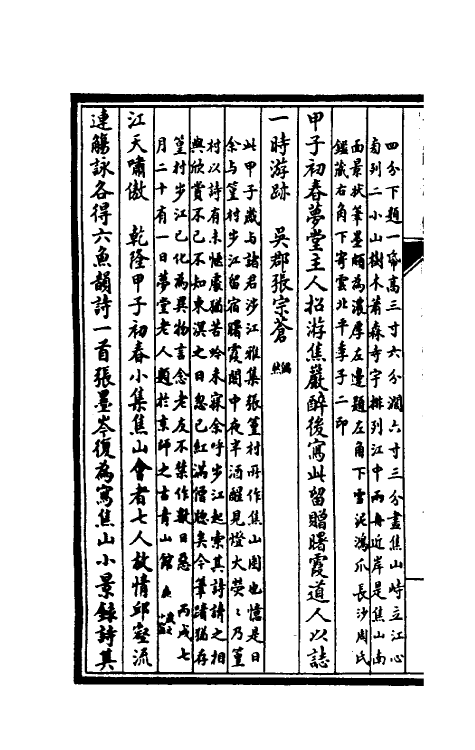 四分下題一段高三寸六分濶六寸三分畫焦山峙立江心
葡列二小山樹木蕭森寺宇排列江中兩舟近岸是焦山南
面景狀筆墨頗為濃厚左邊題左角下雪泥鴻爪長沙周氏
鑑藏右角下寄雲北平季子二印
甲子初春夢堂主人招游焦巖醉後寫此留贈曙霞道人以誌
一時游跡　吳郡張宗蒼
此甲子歲與諸君涉江雅集張篁村再作焦山圖也憶是日
余与篁村步江留宿曙霞閣中夜半酒醒見燈火熒〻乃篁
村以詩有未愜處猶苦吟未寐余呼步江起索其詩讀之相
與欣賞不已不知東溟之日忽已紅滿僧牕矣今筆蹟猶存
篁村步江已化為異物言念老友不禁作數日惡　丙戌七
月二十有一日夢堂老人題於京師之古青山館
江天嘯傲　乾隆甲子初春小集焦山會者七人放情邱壑流
連觴詠各得六魚韻詩一首張墨岑復為寫焦山小景錄詩其